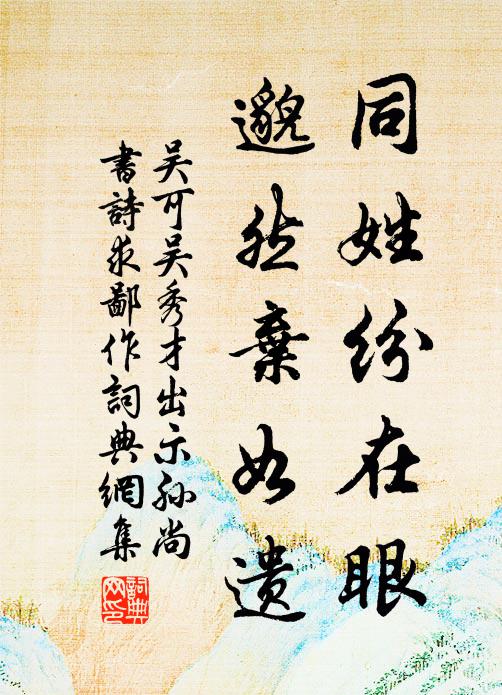 同姓纷在眼
邈然棄如遗
吴可吴秀才出示孙尚
書詩求鄙作詞典網集
詞典网印